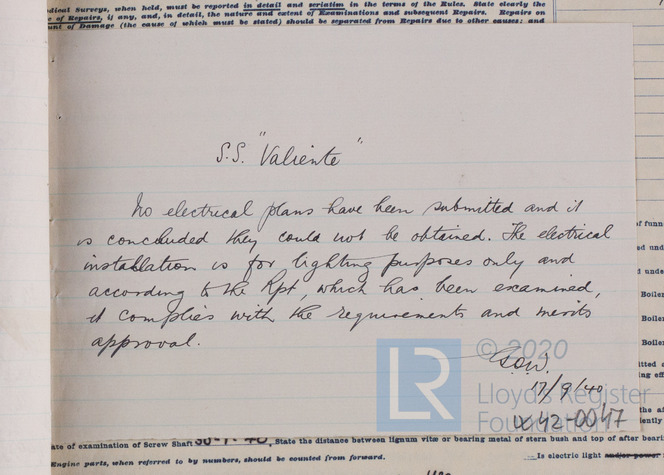 odical Surveys, when held, must be reported in detail and seriatim in the terms of the Rules. State clearly the
e of Repairs, if any, and, in detail, the nature and extent of Examinations and subsequent Repairs. Repairs on
unt of Damage (the cause of which must be stated) should be separated from Repairs due to other causes; and
S.S. "Valiente"
No electrical plans have been submitted and it
is concluded they could not be obtained. The electrical
installation is for lighting purposes only and
according to the Rpt, which has been examined,
it complies with the requirements and merits
approval.
G.O.W.
17/9/40
LR © 2020
Lloyd's Register
Foundation
W42-0047
of funn
Boiler
Boiler
Boiler
ate of examination of Screw Shaft 30-7-40. State the distance between lignum vitæ or bearing metal of stern bush and top of after bearin
Engine parts, when referred to by numbers, should be counted from forward.
Is electric light and/or power